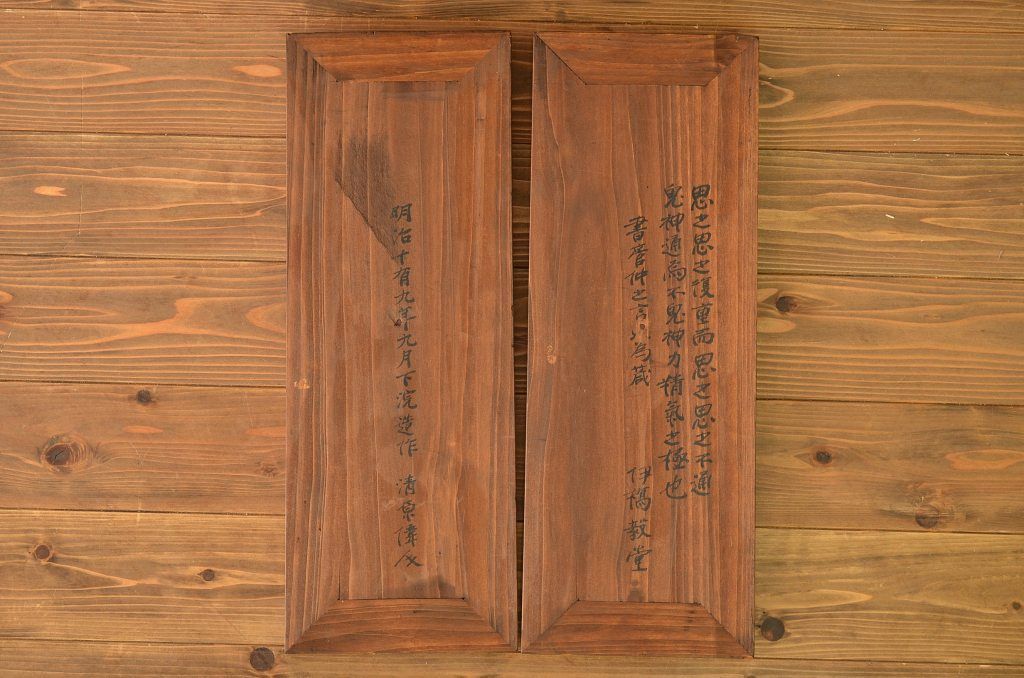 思之思之復重而思之思之不通
鬼神通焉不鬼神力精氣之極也
書管仲之言以為箴 橋 堂
明治十有九年九月下浣造作 清原偉